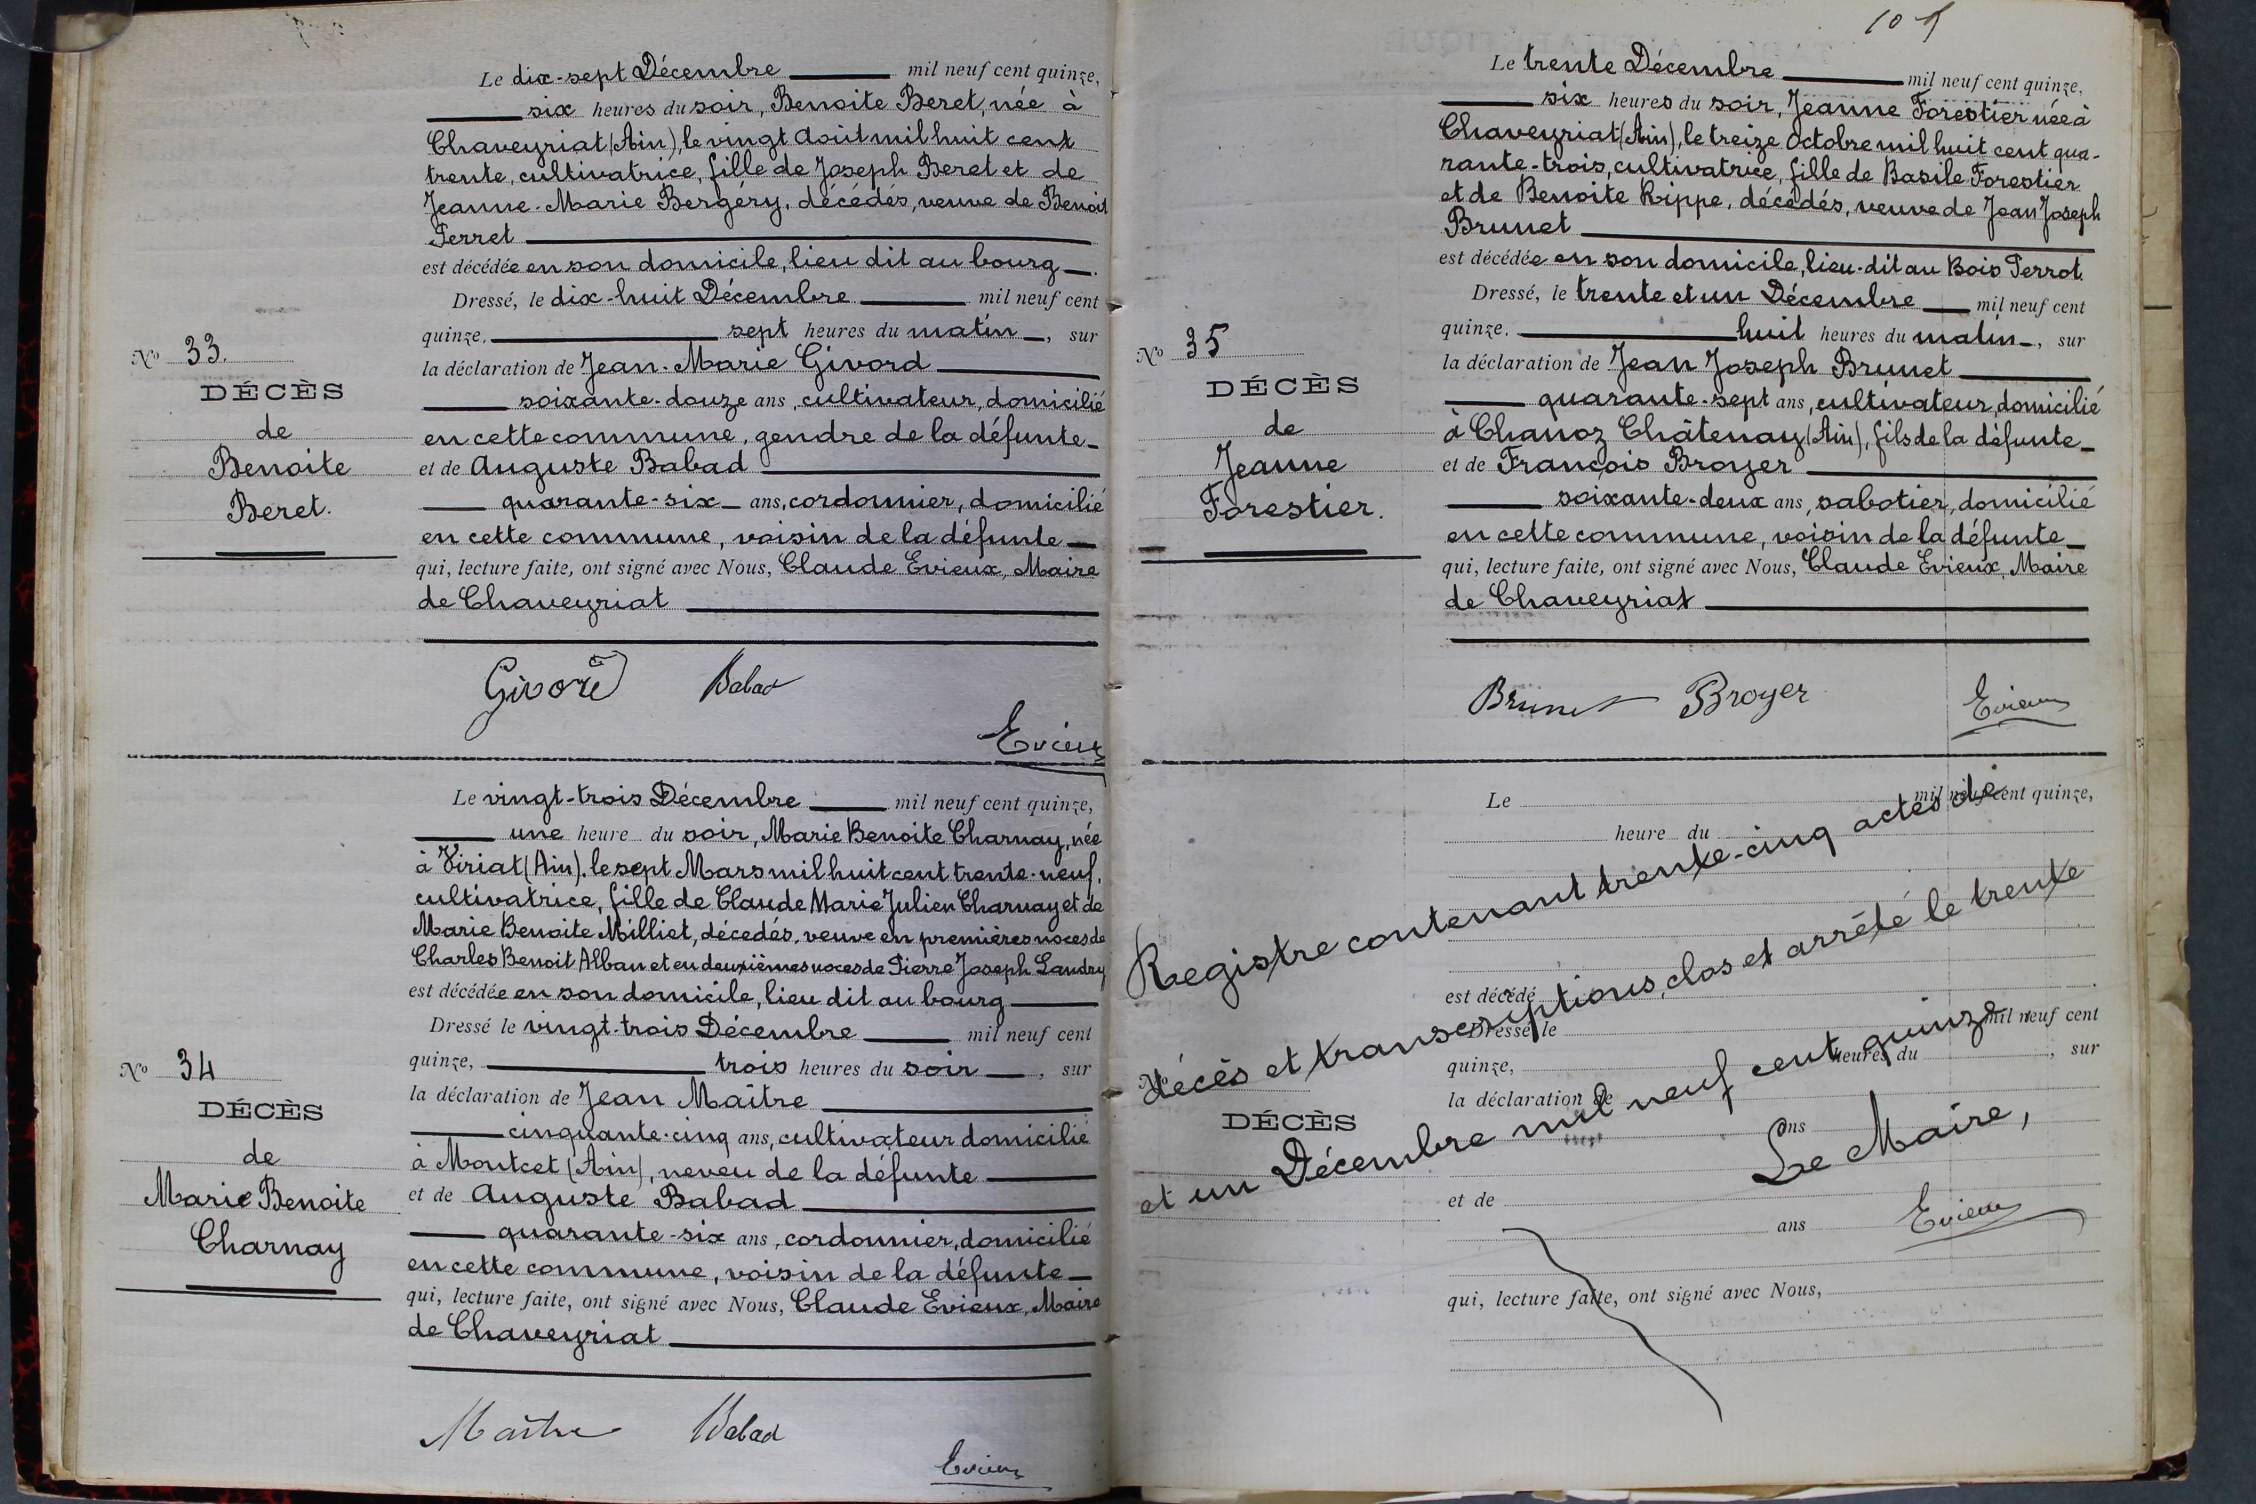 Le dix-sept Décembre mil neuf cent quinze,
six heures du soir, Benoite Beret, née à
Chaveyriat (Ain), le vingt Août mil huit cent
trente, cultivatrice, fille de Joseph Beret et de
Jeanne-Marie Bergéry, décédés, veuve de Benoit
Perret
est décédée en son domicile, lieu dit au bourg
Dressé, le dix-huit Décembre mil neuf cent
quinze, sept heures du matin, sur
la déclaration de Jean-Marie Givord
soixante-douze ans, cultivateur, domicilié
en cette commune, gendre de la défunte
et de Auguste Babad
quarante-six ans, cordonnier, domicilié
en cette commune, voisin de la défunte
qui, lecture faite, ont signé avec Nous, Claude Evieux, Maire
de Chaveyriat
No 33.
DÉCÈS
de
Benoite
Beret.
Givord Babad
Evieux
Le vingt-trois Décembre mil neuf cent quinze,
une heure du soir, Marie Benoite Charnay, née
à Viriat (Ain), le sept Mars mil huit cent trente-neuf,
cultivatrice, fille de Claude Marie Julien Charnay et de
Marie Benoite Milliet, décedés, veuve en premières noces de
Charles Benoit Alban et en deuxièmes noces de Pierre Joseph Landry
est décédée en son domicile, lieu dit au bourg
Dressé le vingt-trois Décembre mil neuf cent
quinze, trois heures du soir, sur
la déclaration de Jean Maître
cinquante-cinq ans, cultivateur domicilié
à Montcet (Ain), neveu de la défunte
et de Auguste Babad
quarante-six ans, cordonnier, domicilié
en cette commune, voisin de la défunte
qui, lecture faite, ont signé avec Nous, Claude Evieux, Maire
de Chaveyriat
No 34
DÉCÈS
de
Marie Benoite
Charnay
Maître Babad
Evieux
Le trente Décembre mil neuf cent quinze,
six heures du soir, Jeanne Forestier née à
Chaveyriat (Ain), le treize Octobre mil huit cent qua-
rante-trois, cultivatrice, fille de Basile Forestier
et de Benoite Rippe, décédés, veuve de Jean Joseph
Brunet
est décédée en son domicile, lieu-dit au Bois Perrot.
Dressé, le trente et un Décembre mil neuf cent
quinze. huit heures du matin, sur
la déclaration de Jean Joseph Brunet
quarante-sept ans, cultivateur, domicilié
à Chanoz Châtenay (Ain), fils de la défunte
et de François Broyer
soixante-deux ans, sabotier, domicilié
en cette commune, voisin de la défunte
qui, lecture faite, ont signé avec Nous, Claude Evieux, Maire
de Chaveyriat
No 35
DÉCÈS
de
Jeanne
Forestier.
Brunet Broyer Evieux
Le mil neuf cent quinze,
heure du
est décédé
Dressé le mil neuf cent
quinze, heures du , sur
la déclaration de
ans
et de
ans
qui, lecture faite, ont signé avec Nous,
No
DÉCÈS
Registre contenant trente-cinq actes de
décès et transcriptions, clos et arrêté le trente
et un Décembre mil neuf cent quinze.
Le Maire,
Evieux